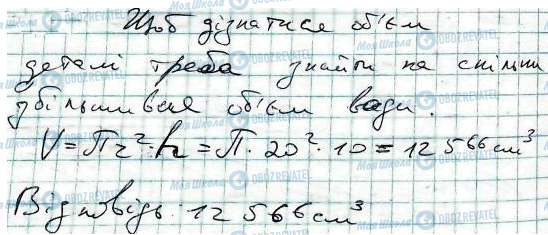 Щоб дізнатися об'єм
деталі треба знайти на скільки
збільшився об'єм води.
V = Πr²·h = Π · 20² · 10 = 12 566 см³
Відповідь: 12 566 см³